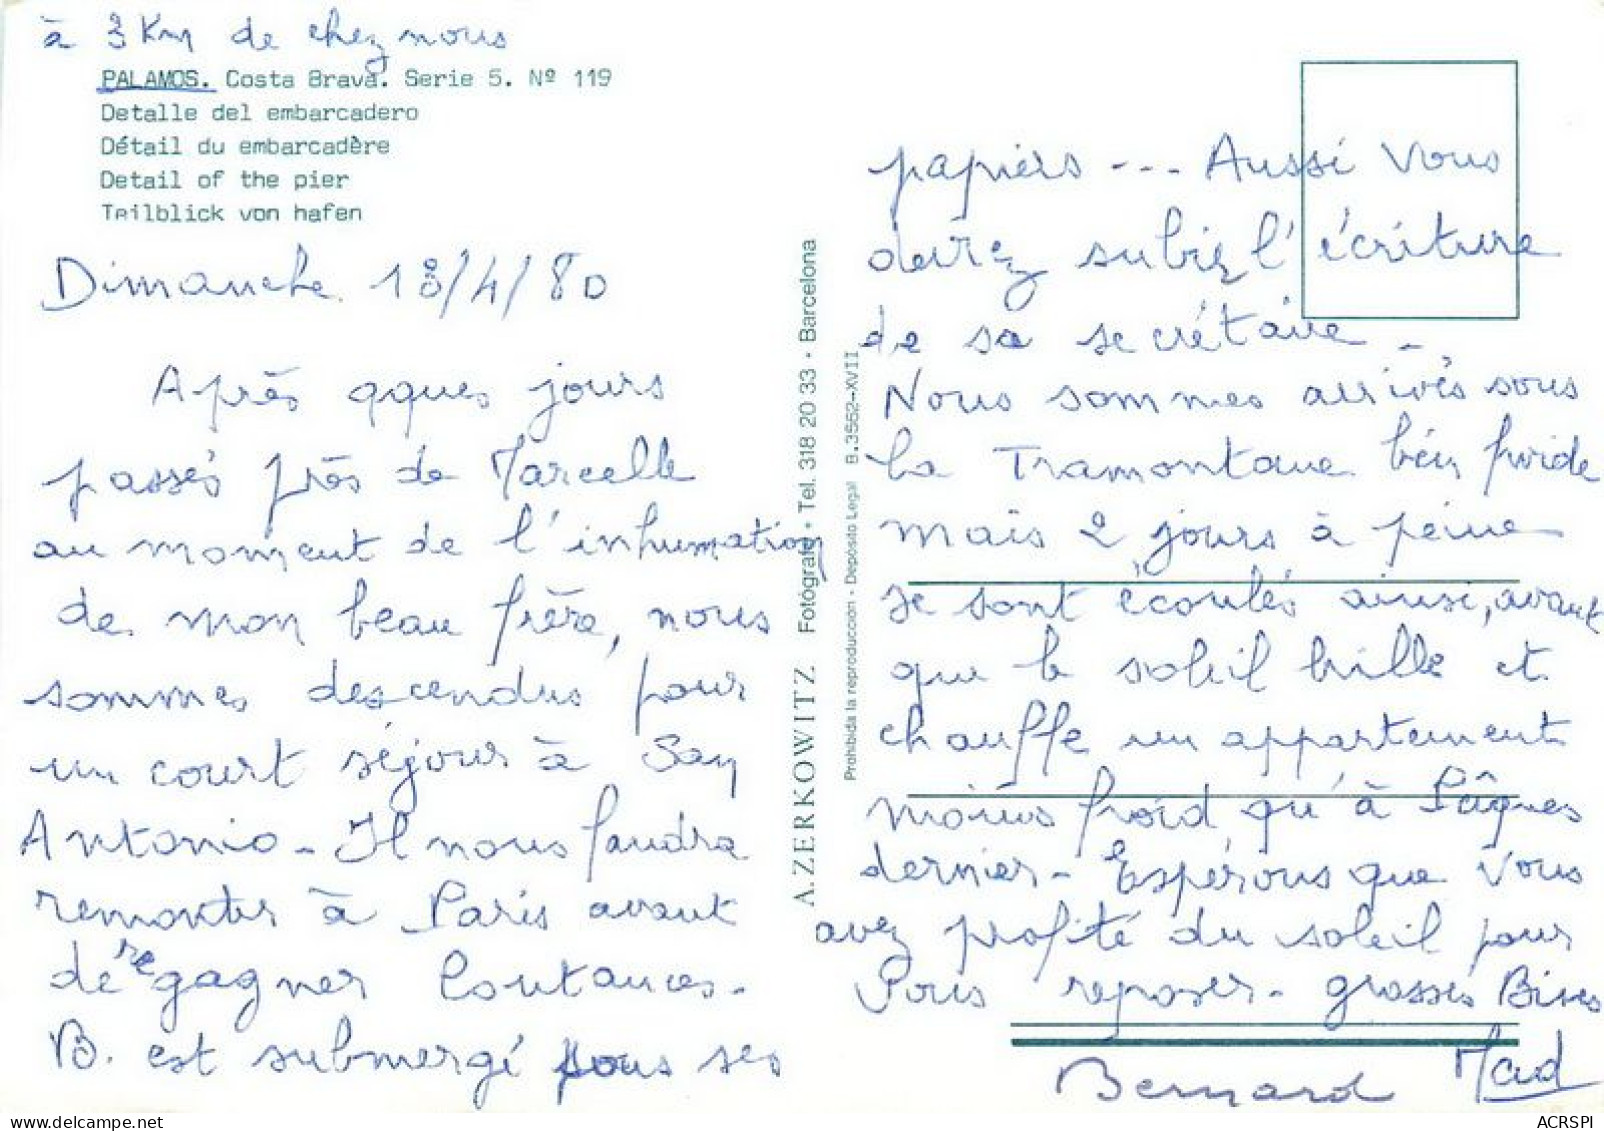 à 3 Km de chez nous
PALAMOS. Costa Brava. Serie 5. Nº 119
Detalle del embarcadero
Détail du embarcadère
Detail of the pier
Teilblick von hafen
Dimanche 13/4/80
Après qques jours
passés près de Marcelle
au moment de l'inhumation
de mon beau frère, nous
sommes descendus pour
un court séjour à San
Antonio - Il nous faudra
remonter à Paris avant
de regagner Coutances -
B. est submergé sous ses
A. ZERKOWITZ Fotógrafo • Tel. 318 20 33 • Barcelona
Prohibida la reproducción - Depósito Legal B.3552-XVII
papiers --- Aussi vous
devez subir l'écriture
de sa secrétaire -
Nous sommes arrivés sous
la Tramontane bien froide
mais 2 jours à peine
se sont écoulés ainsi, avant
que le soleil brille et
chauffe un appartement
moins froid qu'à Pâques
dernier - Espérons que vous
avez profité du soleil pour
vous reposer - grosses Bises
Bernard Mad
ACRSPI